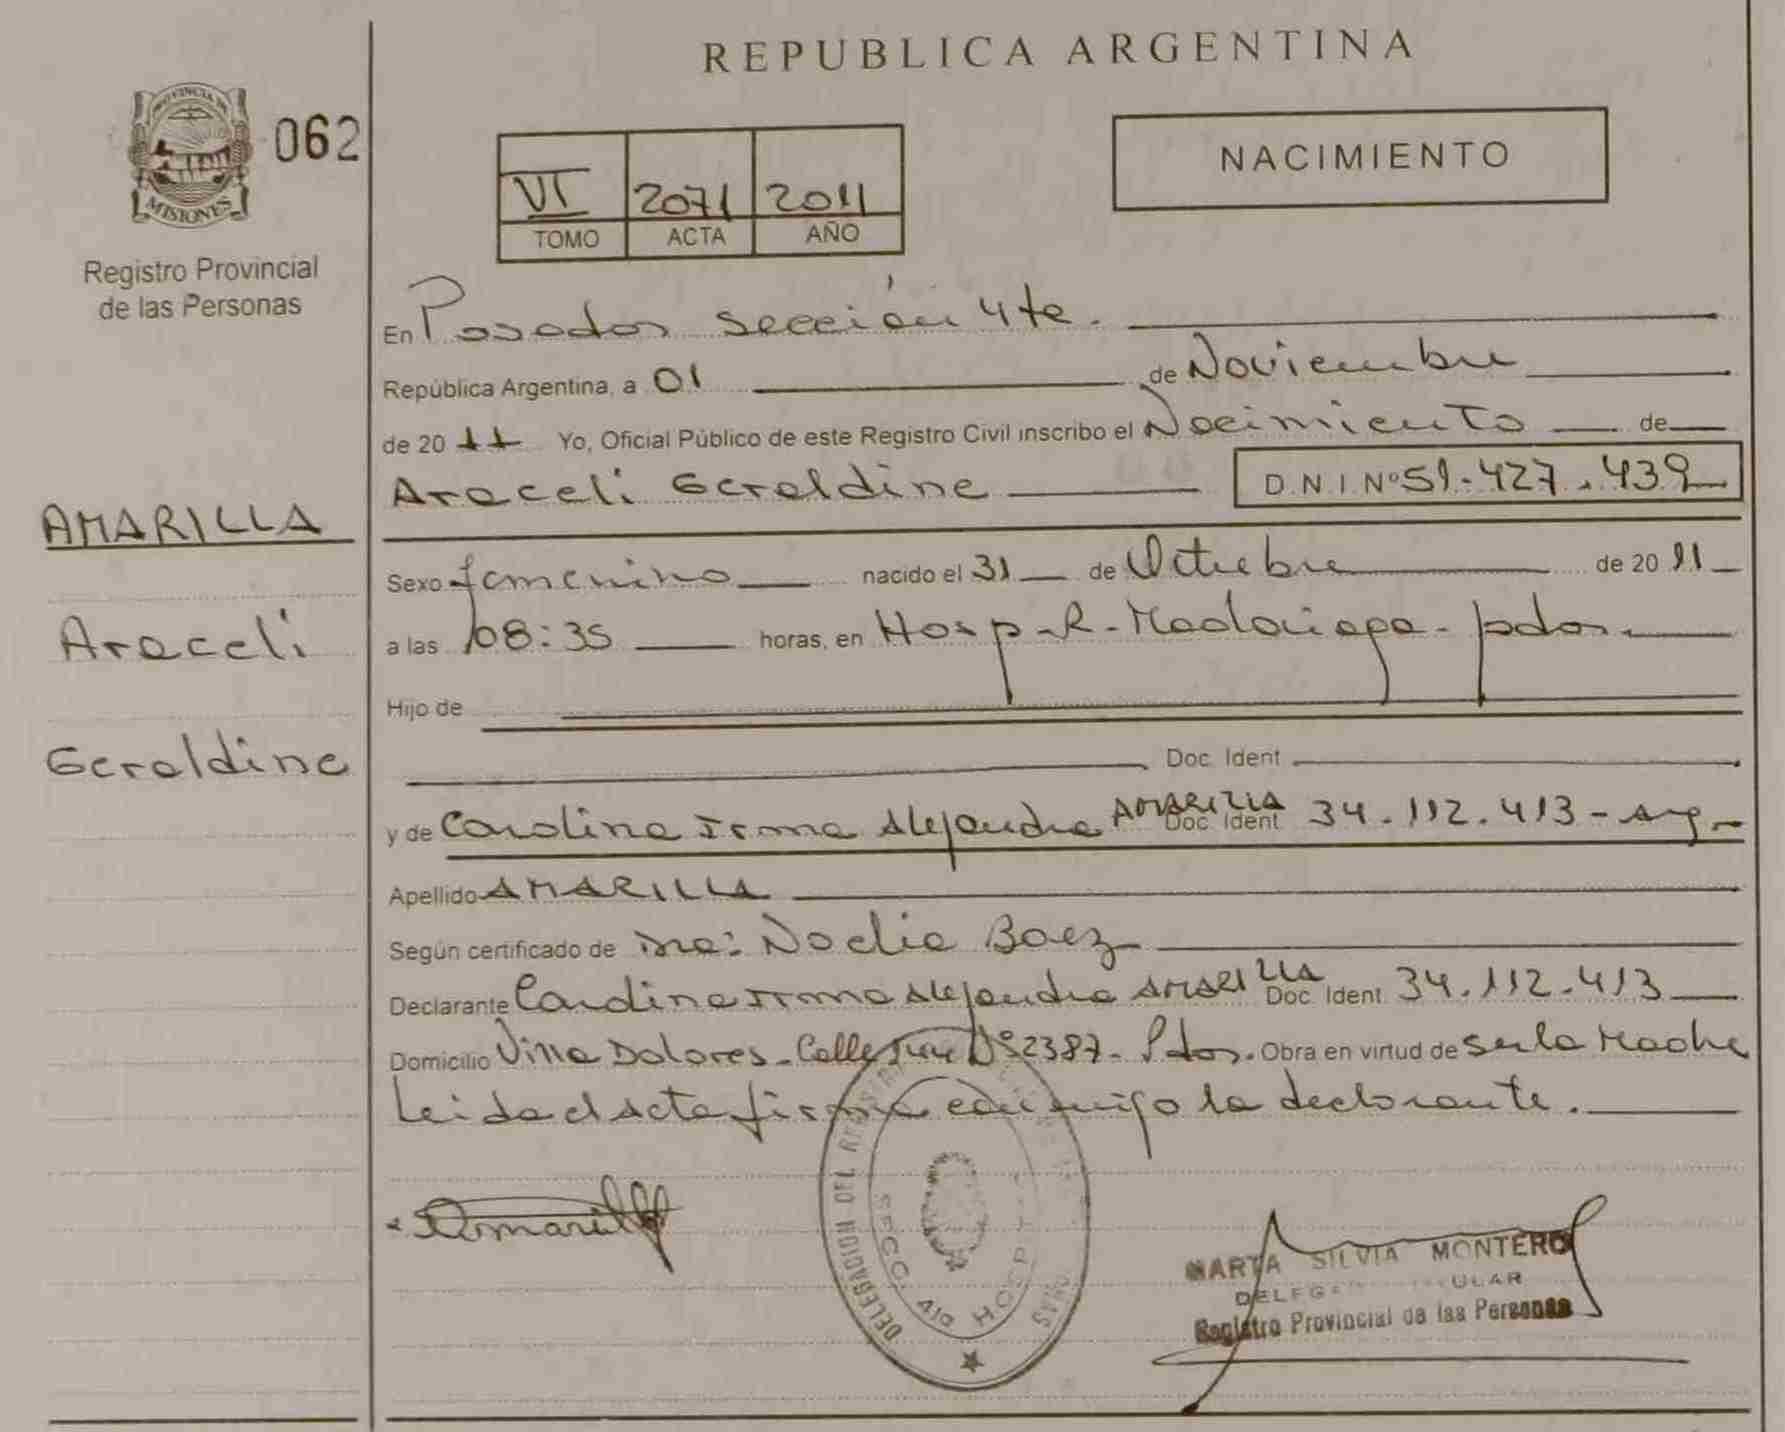 REPUBLICA ARGENTINA
PROVINCIA DE
MISIONES
062
Registro Provincial
de las Personas
VI 2071 2011
TOMO ACTA AÑO
NACIMIENTO
En Posadas sección 4ta.
República Argentina, a 01 de Noviembre
de 2011 Yo, Oficial Público de este Registro Civil inscribo el Nacimiento de
Araceli Geraldine D.N.I.Nº 51.427.439
AMARILLA
Araceli
Geraldine
Sexo femenino nacido el 31 de Octubre de 2011
a las 08:35 horas, en Hosp. R. Madariaga - pdas.
Hijo de
Doc. Ident
y de Carolina Irma Alejandra AMARILLA Doc. Ident 34.112.413 - Arg.
Apellido AMARILLA
Según certificado de Dra: Noelia Baez
Declarante Carolina Irma Alejandra AMARILLA Doc. Ident 34.112.413
Domicilio Villa Dolores - Calle Nº 2387 - Pdas. Obra en virtud de ser la Madre
Leida el acta firma conmigo la declarante.
Amarilla
DELEGACION DEL
HOSPIT
MARTA SILVIA MONTERO
Registro Provincial de las Personas